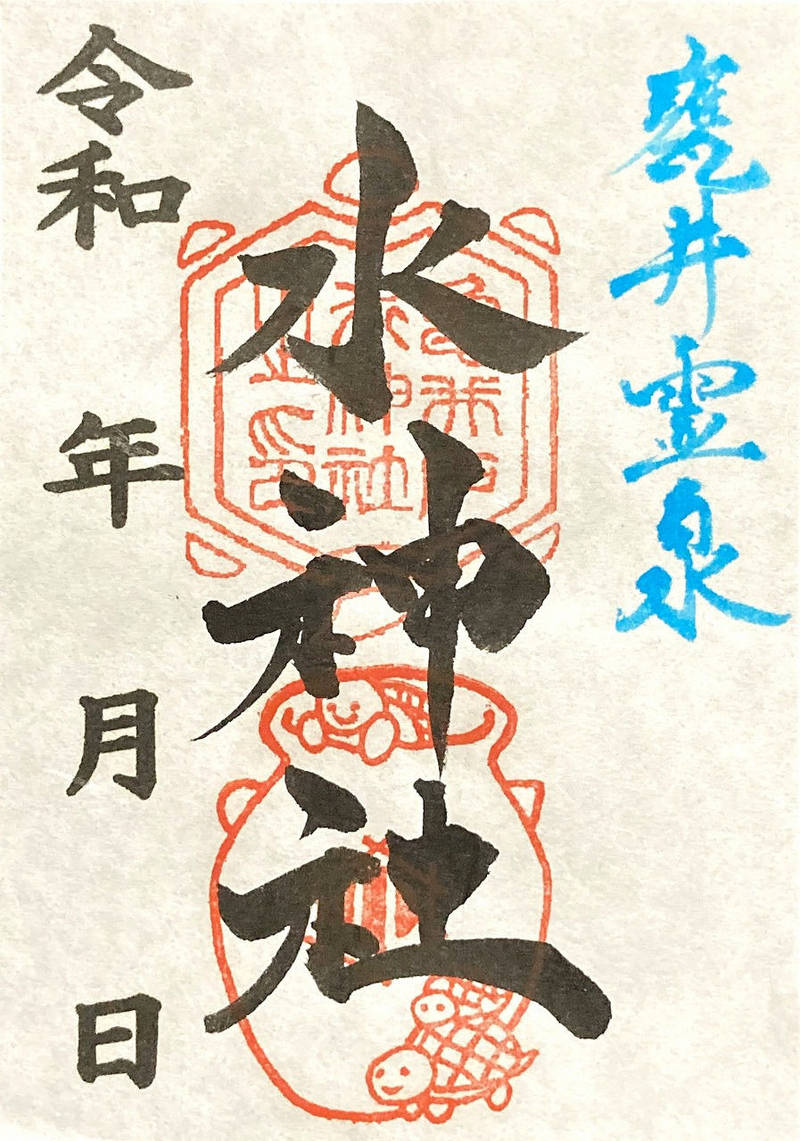 甕井霊泉
水神社
令和 年 月 日